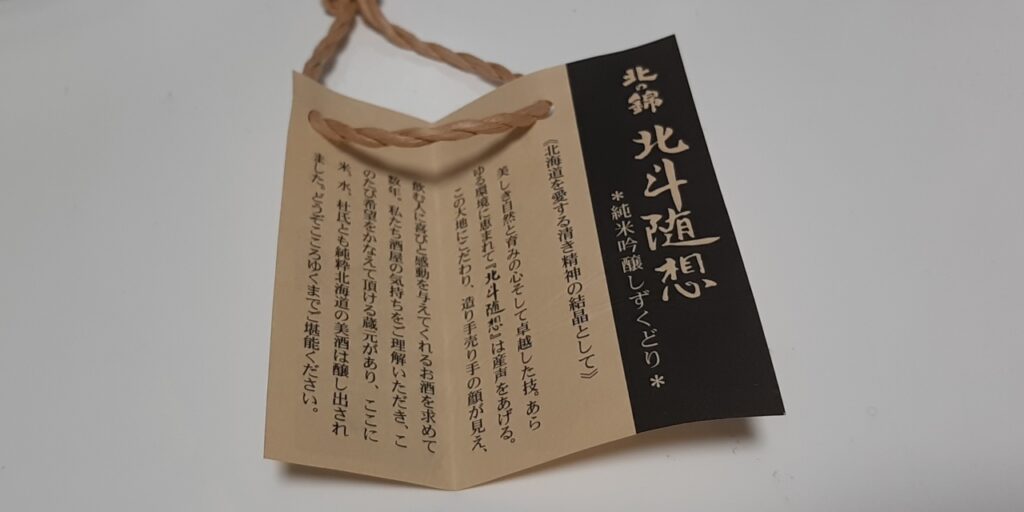 北の錦
北斗随想
＊純米吟醸しずくどり＊
《北海道を愛する清き精神の結晶として》
美しき自然と育みの心そして卓越した技。あら
ゆる環境に恵まれて『北斗随想』は産声をあげる。
この大地にこだわり、造り手売り手の顔が見え、
飲む人に喜びと感動を与えてくれるお酒を求めて
数年。私たち酒屋の気持ちをご理解いただき、こ
のたび希望をかなえて頂ける蔵元があり、ここに
米、水、杜氏とも純粋北海道の美酒は醸し出され
ました。どうぞこころゆくまでご堪能ください。